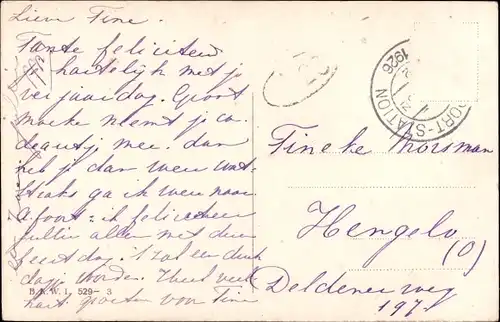 Lieve Fine.
Tante feliciteer
hartelijk met je
verjaardag. Groot
moeke neemt je ca
deautje mee. dan
heb je dan weer wat.
Straks ga ik weer naar
ik feliciteer
jullie allen met deze
feestdag. 't zal een druk
dagje worden. Heel veel
hart. groeten van Fine
B.K.W.I. 529-3
1926
PORT-STATION
Fineke Morsman
Hengelo
(O)
Deldenerweg
197